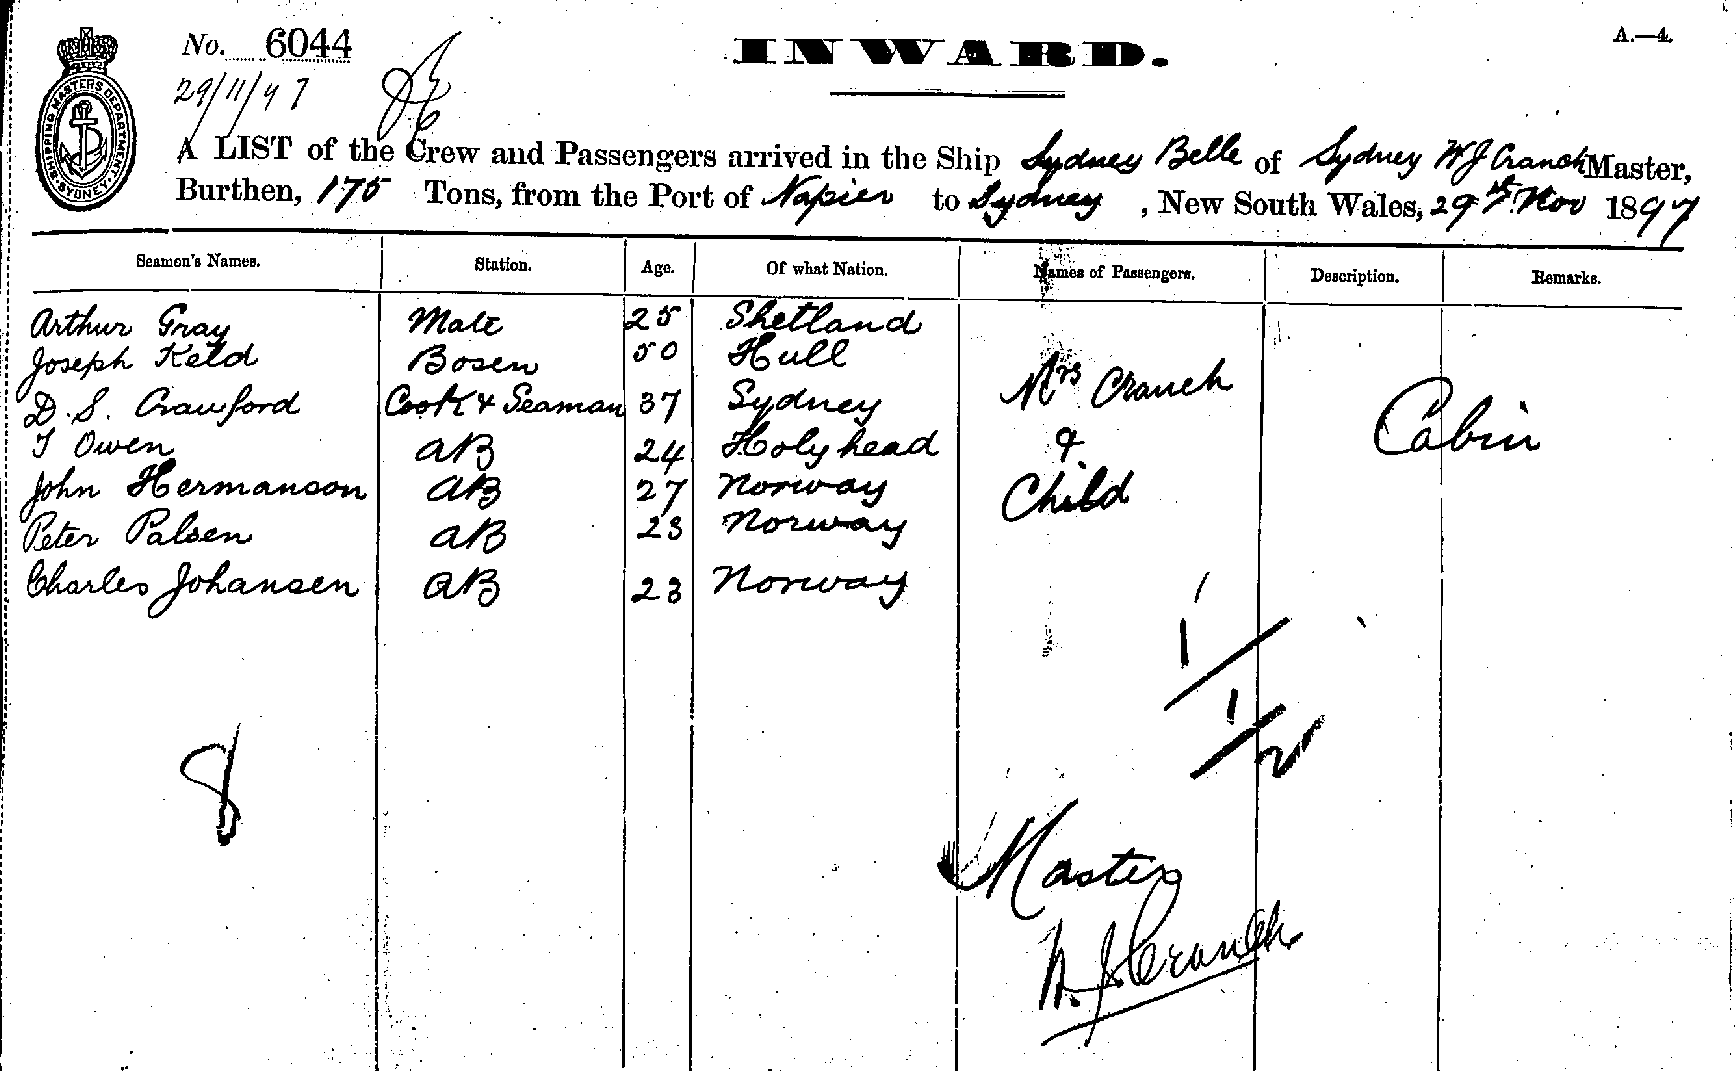 No. 6044
INWARD.
A.—4.
29/11/97
SHIPPING MASTERS DEPARTMENT SYDNEY
A LIST of the Crew and Passengers arrived in the Ship Sydney Belle of Sydney W J Cranch Master,
Burthen, 175 Tons, from the Port of Napier to Sydney, New South Wales, 29th Nov 1897
Seamen's Names. Station. Age. Of what Nation. Names of Passengers. Description. Remarks.
Arthur Gray Mate 25 Shetland
Joseph Keld Bosen 50 Hull
D. S. Crawford Cook & Seaman 37 Sydney Mrs Cranch Cabin
T Owen AB 24 Holyhead &
John Hermanson AB 27 Norway Child
Peter Palsen AB 23 Norway
Charles Johansen AB 23 Norway
1/1/2
8
Master
W. J Cranch